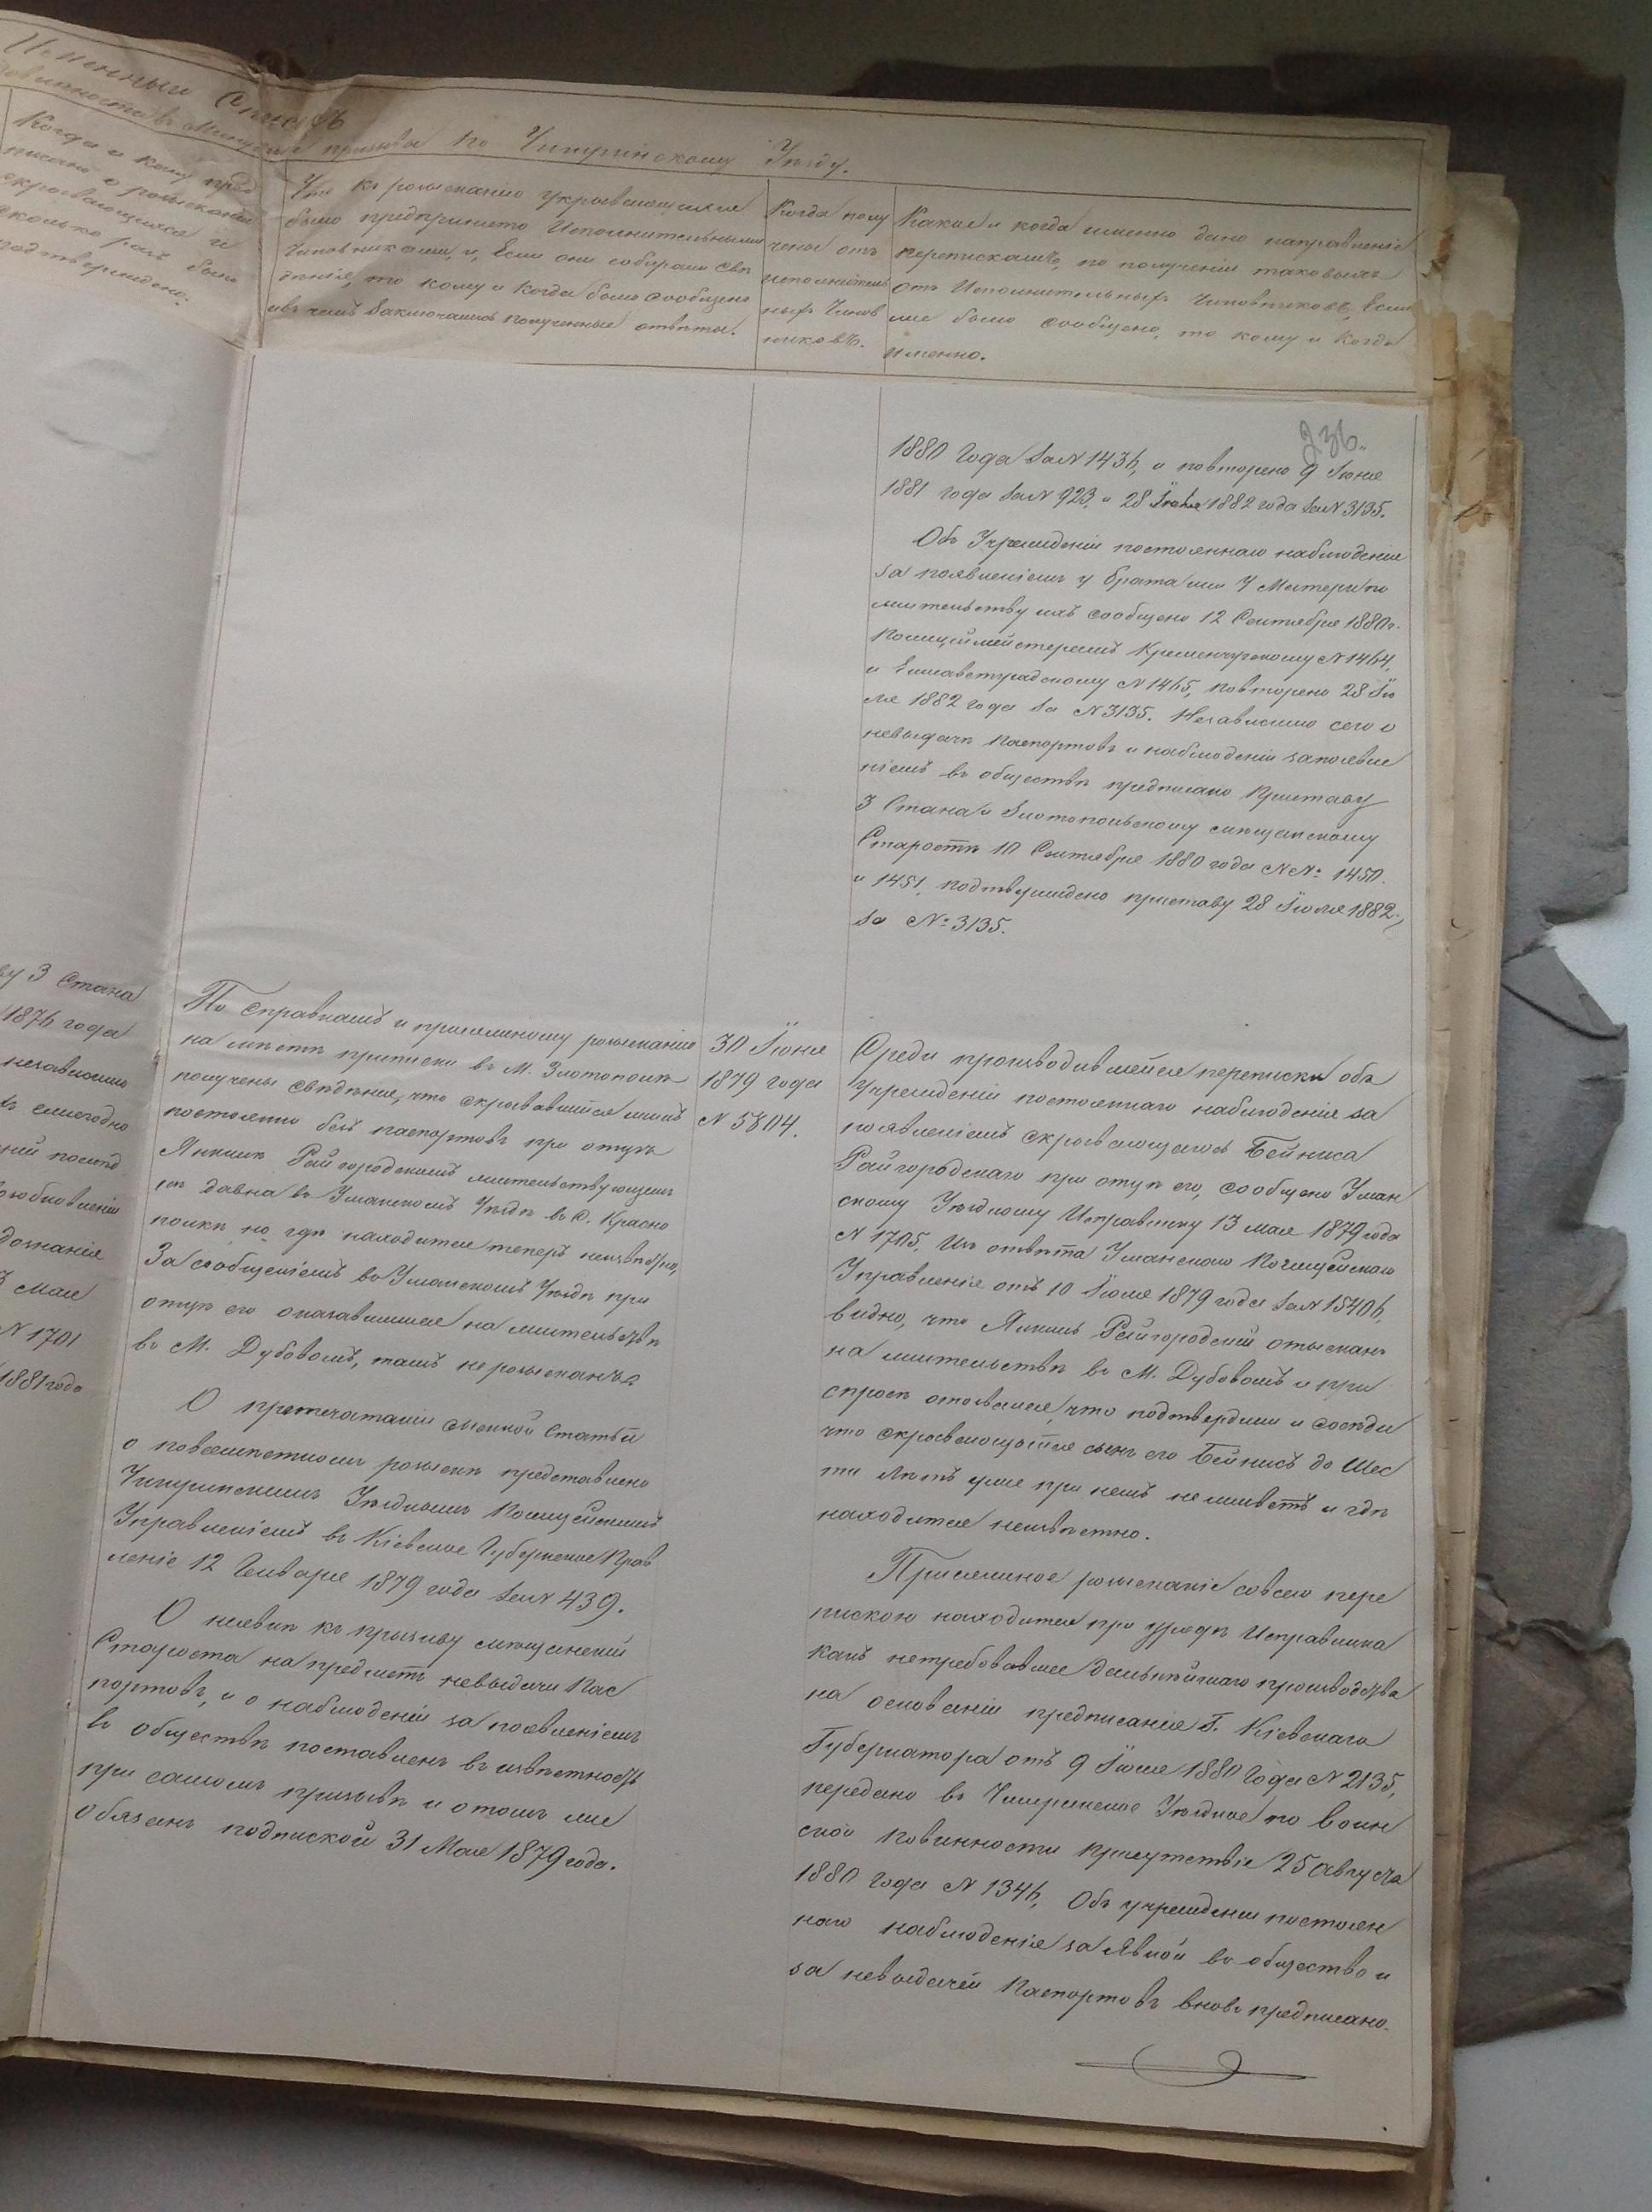 Именный Списокъ
призыва по Чигиринскому Уѣзду.
Когда и кому пред
писано о розысканіи
скрывающихся и
сколько разъ было
подтверждено.
Что къ розысканію укрывающихся
было предпринято Исполнительными
Чиновниками, и, Если они собирали свѣ
дѣнія, то кому и когда было сообщено
и въ чемъ заключались полученные отвѣты.
Когда полу
чены отъ
исполнитель
ныхъ Чинов
никовъ.
Какое и когда именно дано направленіе
перепискамъ, по полученіи таковыхъ
отъ Исполнительныхъ Чиновниковъ, Если
же было сообщено, то кому и когда
именно.
236.
1880 года за N 1436, и повторено 9 Іюня
1881 года за N 923, и 28 Іюля 1882 года за N 3135.
Объ Учрежденіи постояннаго наблюденія
за появленіемъ у брата или у Матери по
жительству ихъ сообщено 12 Сентября 1880 г.
Полиціймейстерамъ Кременчугскому N 1464,
и Елисаветградскому N 1465, повторено 28 Ію
ля 1882 года за N 3135. Независимо сего о
невыдачѣ паспортовъ и наблюденіи за появле
ніемъ въ обществѣ предписано Приставу
3 Стана и Златопольскому мѣщанскому
Старостѣ 10 Сентября 1880 года NN: 1450.
и 1451, подтверждено приставу 28 Іюля 1882 г.,
за №: 3135.
ву 3 Стана
1876 года
независимо
ежегодно
ній послѣд
возобновленіи
дознанія
Мая
N 1701
1881 года
По справкамъ и присяжному розысканію
на мѣстѣ приписки въ М. Златополѣ
получены свѣдѣнія, что скрывавшійся жилъ
постоянно безъ паспортовъ при отцѣ
Янкелѣ Райгородскомъ жительствующемъ
съ давна въ Уманскомъ Уѣздѣ въ С. Красно
полкѣ, но гдѣ находится теперь неизвѣстно,
За сообщеніемъ въ Уманскомъ Уѣздѣ при
отцѣ его оказавшимся на жительствѣ
въ М. Дубовомъ, тамъ не розысканъ.
О пропечатаніи сыскной Статьи
о повсемѣстномъ розыскѣ представлено
Чигиринскимъ Уѣзднымъ Полицейскимъ
Управленіемъ въ Кіевское Губернское Прав
леніе 12 Генваря 1879 года за N 439.
О неявкѣ къ призыву мѣщанскій
Староста на предметъ невыдачи Пас
портовъ, и о наблюденіи за появленіемъ
въ обществѣ поставленъ въ извѣстность
при самомъ призывѣ и о томъ же
обязанъ подпиской 31 Мая 1879 года.
30 Іюня
1879 года
N 5804.
Среди производившейся переписки объ
учрежденіи постояннаго наблюденія за
появленіемъ скрывающагося Бейниса
Райгородскаго при отцѣ его, сообщено Уман
скому Уѣздному Исправнику 13 мая 1879 года
N 1705, Изъ отвѣта Уманскаго Полицейскаго
Управленія отъ 10 Іюля 1879 года за N 15406,
видно, что Янкель Райгородскій отысканъ
на жительствѣ въ М. Дубовомъ и при
спросѣ отозвался, что подтвердили и сосѣди
что скрывающійся сынъ его Бейнисъ до Шес
ти лѣтъ уже при немъ не живетъ и гдѣ
находится неизвѣстно.
Присяжное розысканіе со всею пере
пискою находится при урядѣ Исправника
какъ нетребовавшее дальнѣйшаго производства
на основаніи предписанія Г. Кіевскаго
Губернатора отъ 9 Іюля 1880 года N 2135,
передано въ Чигиринское Уѣздное по воин
ской повинности Присутствіе 25 августа
1880 года N 1346, Объ учрежденіи постоян
наго наблюденія за Явкой въ общество и
за невыдачей Паспортовъ вновь предписано.